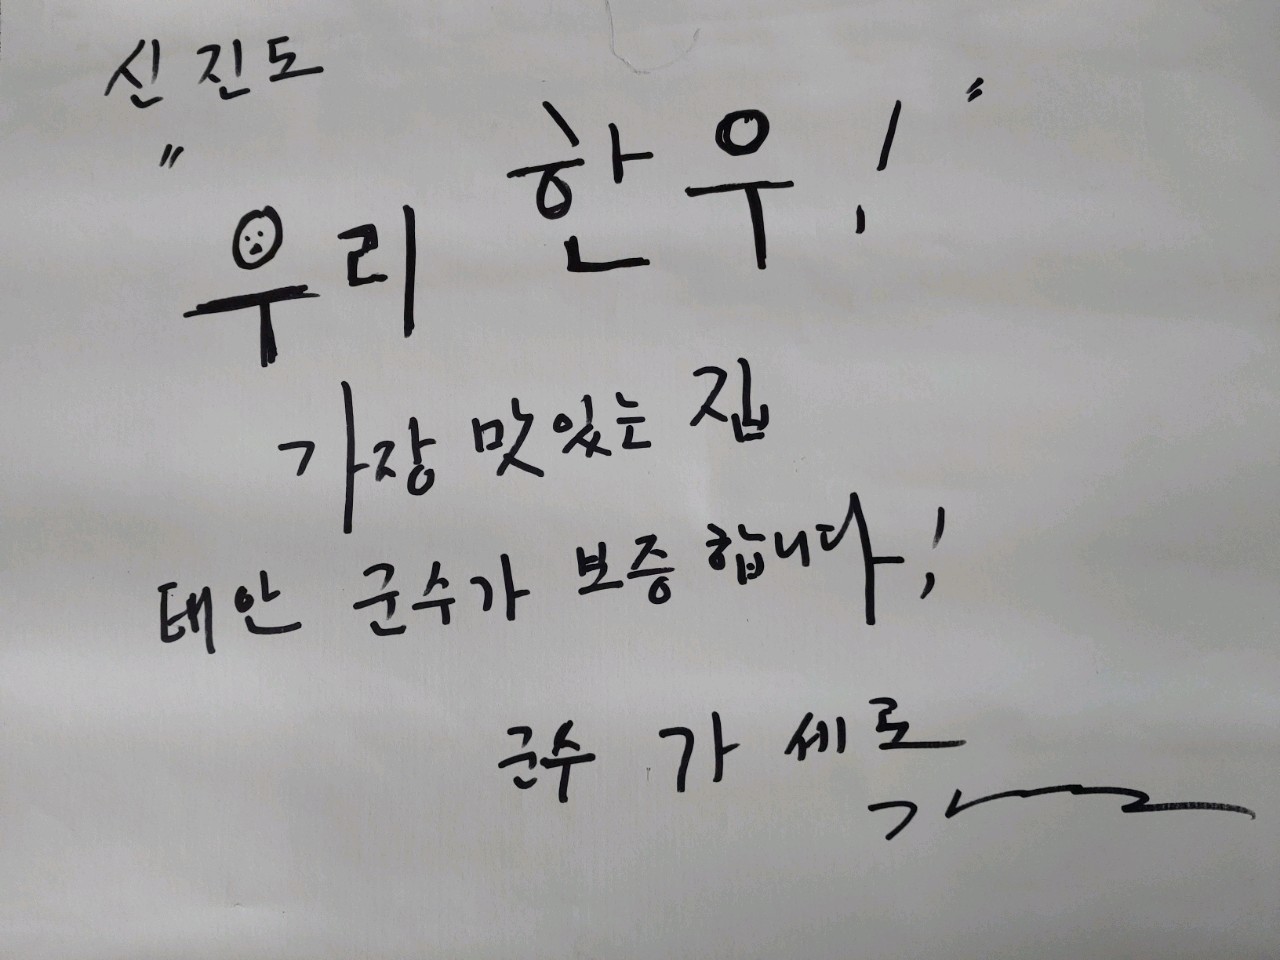 신진도
"우리 한우!"
가장 맛있는 집
태안 군수가 보증합니다!
군수 가세로